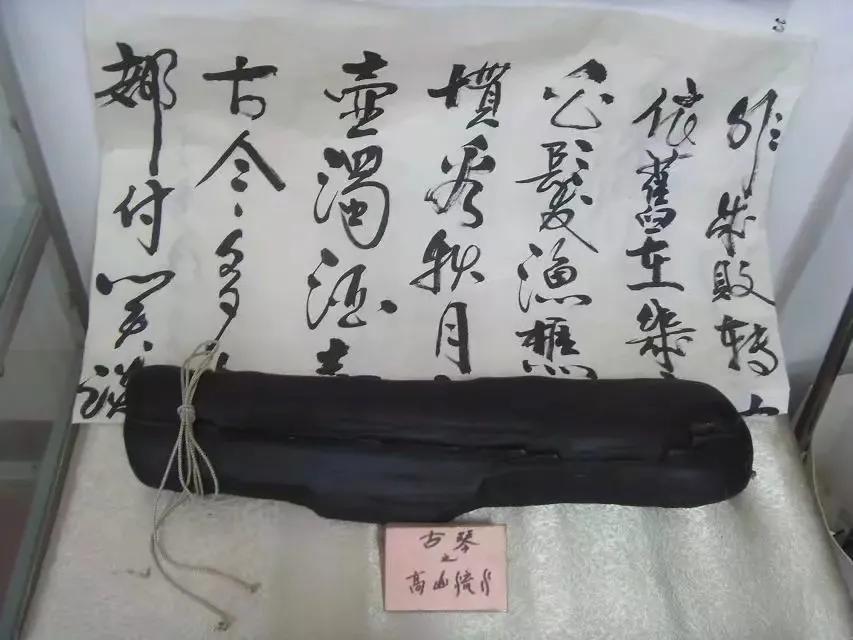 非成敗轉
依舊在幾
白髮漁樵
慣看秋月
壺濁酒
古今多
都付笑談
古琴
之
高山流水